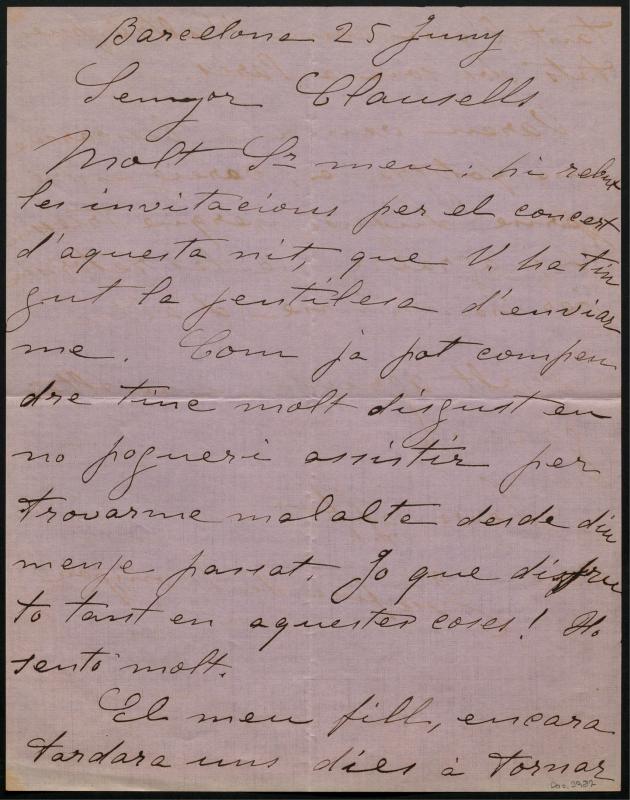 Barcelona 25 Juny
Senyor Clausells
Molt Sr meu: hi rebut
les invitacions per el concert
d'aquesta nit, que V. ha tin
gut la jentilesa d'enviar
me. Com ja pot compen
dre tinc molt disgust en
no pogueri assistir per
trovarme malalta desde diu
menje passat. Jo que disfru
to tant en aquestes coses! Ho
sento molt.
El meu fill, encara
tardara uns dies à tornar
Doc. 2927